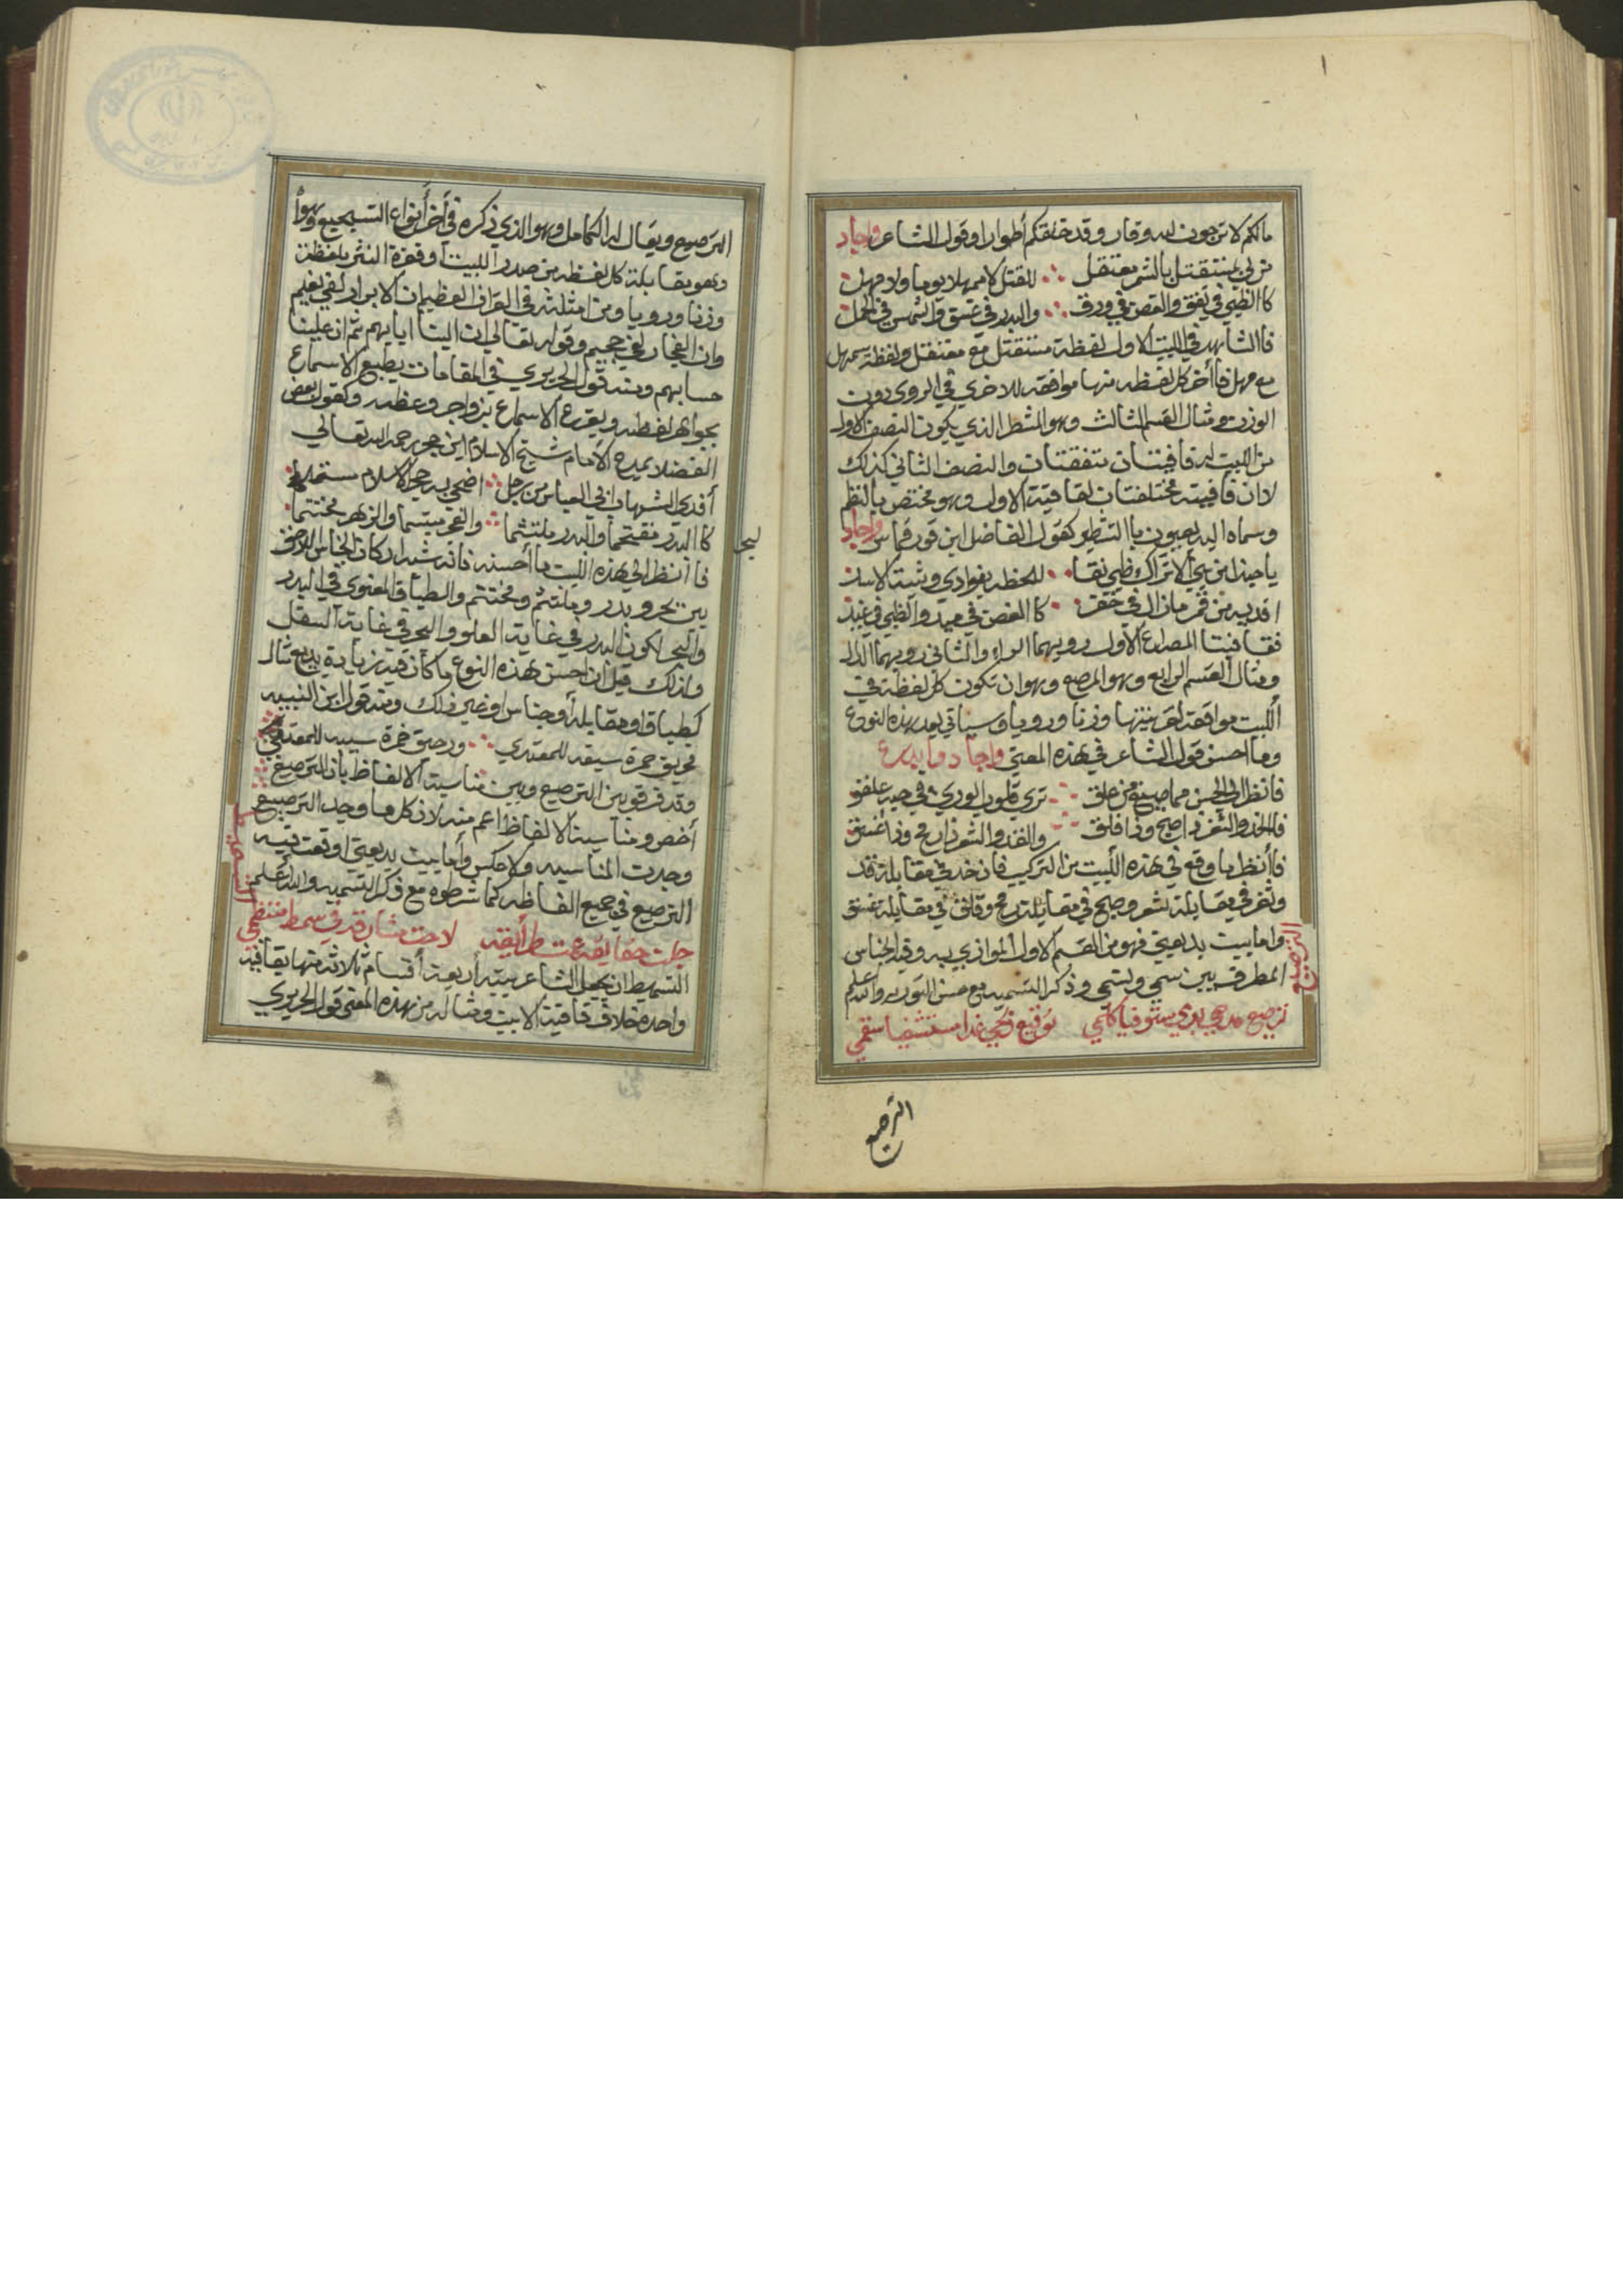 مالكم لا ترجون لله وقارا وقد خلقكم أطوارا وقول الشاعر واجاد
للقتل لا ممهلا يوما ولا مهل
كالظبي في والغصن في ورق والبدر في غسق والشمس في الحمل
فالشاهد في البيت الاول لفظة مع معتقل ولفظة
مع مهل فأخر كل لفظه منها موافقة للاخري في الروي دون
الوزن ومثال القسم الثالث وهو المشطر الذي يكون النصف الاول
من البيت له قافيتان متفقتان والنصف الثاني كذلك
لان قافيته مختلفتان لقافية الاول وهو مختص بالنظم
وسماه البديعيون بالتشطير كقول الفاضل ابن قرقماس واجاد
ياحبذا من بني الاتراك ظبي نقا للحظه بفوادي وثبة الاسد
افديه من قمر مازال في خفر كالغصن في ميد والظبي في غيد
فقافيتا المصراع الاول رويهما الراء والثاني رويهما الدال
ومثال القسم الرابع وهو المرصع وهو ان تكون كل لفظة في
البيت موافقة لقرينتها وزنا ورويا وسياتي بعد هذه النوع
وما احسن قول الشاعر في هذه المعني واجاد وابدع
فانظر الي الحسن مما صيغ من علق تري قلوب الوري في حبه علقو
فالخد والثغر ذا صبح وذا فلق والقد والشعر ذا رمح وذا غسق
فأنظر ما وقع في هذه البيت من التركيب فان خد في مقابلة قد
وثغر في مقابلة شعر وصبح في مقابلة رمح وفلق في مقابلة غسق
واما بيت بديعيتي فهو من القسم الاول الموازي به وفيه الجناس
المطرف بين سمي وتسمي وذكر التسميه مع حسن التوريه والله اعلم
ترصيع مدحي بدي ستوفيا كلمي توقيع مستشفيا سقمي
الترصيع
الترصيع
الترصيع ويقال له الكامل وهو الذي ذكره في أخر أنواع التسجيع وهو
وهو مقابلة كل لفظه من صدر البيت او فقرة النثر بلفظة
وزنا ورويا ومن امثلته في القران العظيم ان الابرار لفي نعيم
وان الفجار لفي جحيم وقوله تعالي ان الينا ايابهم ثم ان علينا
حسابهم ومنه قول الحريري في المقامات يطبع الاسماع
بجواهر لفظه ويقرع الاسماع بزواجر وعظه وكقول بعض
الفضلا يمدح الامام شيخ الاسلام ابن حجر رحمه الله تعالي
أفدي الشهاب ابي العباس من رجل اضحي به حجر الاسلام مستلما
كالبدر مفتتحا والبدر ملتثما والفجر مبتسما والزهر مختتما
فأنظر الي هذه البيت ما أحسنه فانه شيد اركان الجناس اللاحق
بين بحر وبدر وملتثم ومختتم والطباق المعنوي في البدر
والبحر لكون البدر في غاية العلو والبحر في غاية السفل
ولذلك قيل ان احسن هذه النوع ما كان فيه زيادة بديع مثال
كطباق او مقابلة أو جناس او غير ذلك ومنه قول ابن النبيه
فحريق جمرة سيفه للمعتدي ورحيق خمرة سيبه للمعتفي
وقد فرقو بين الترصيع وبين مناسبة الالفاظ بان الترصيع
أخص ومناسبة الالفاظ اعم منه لان كل ما وجد الترصيع
وجدت المناسبه ولا عكس وأما بيت بديعيتي اوقعت فيه
الترصيع في جميع الفاظه كما شرطوه مع ذكر التسميه والله أعلم
لاحت في سمط منتظمي
التسميط ان يجعل الشاعر بيته أربعة أقسام ثلاثة منها بقافية
واحده خلاف قافية الابيت ومثاله من هذه المعني قول الحريري